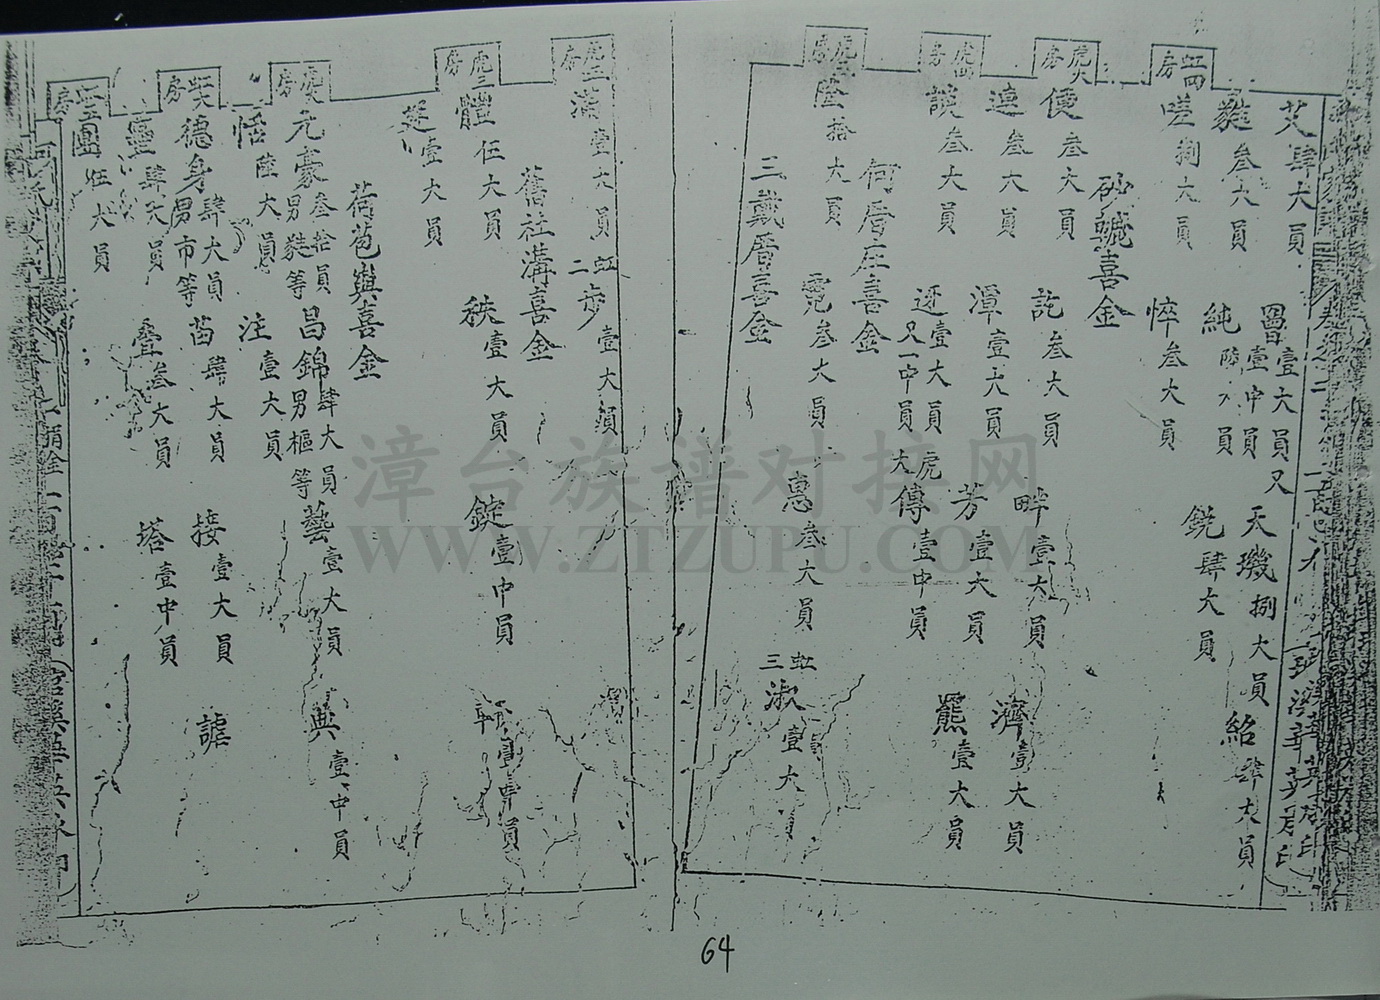 艾肆大員
圖壹大員又壹中員
天璣捌大員
紹肆大員
蕤叁大員
純陸大員
銳肆大員
虹四房
嗟捌大員
悴叁大員
砂轆喜金
虎大房
便叁大員
託叁大員
畔壹大員
濟壹大員
連叁大員
潭壹大員
芳壹大員
羆壹大員
虎四房
談叁大員
迓壹大員又一中員
虎大傳壹中員
何厝庄喜金
虎三房
陞拾大員
霓叁大員
惠叁大員
虹三淑壹大員
三戴厝喜金
虎三房
滿壹大員
虹二步壹大員
舊社溝喜金
虎三房
體伍大員
秩壹大員
錠壹中員
軒壹中員
莚壹大員
荷苞嶼喜金
虎大房
元豪叁拾員男蕤等
昌錦肆大員男樞等
藝壹大員
典壹中員
恬陸大員
注壹大員
虹大房
德身肆大員男市等
茵肆大員
接壹大員
謔
靈肆大員
疊叁大員
塔壹中員
虹三房
團伍大員
漳台族谱对接网
WWW.ZTZUPU.COM
64